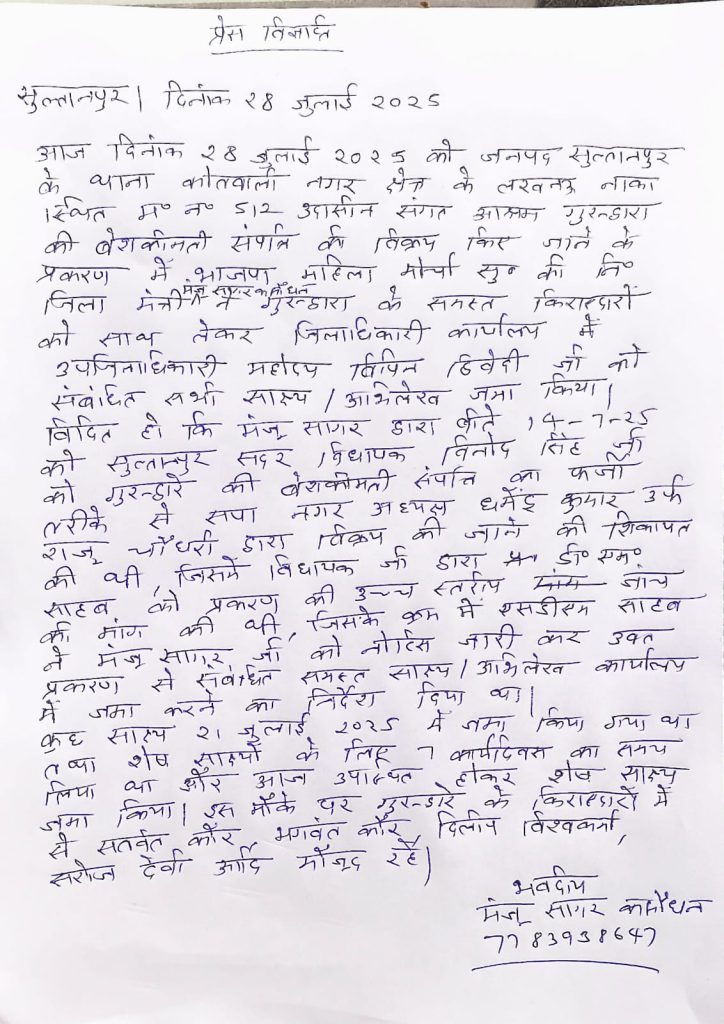 प्रेस विज्ञप्ति
सुल्तानपुर। दिनांक २८ जुलाई २०२५
आज दिनांक २८ जुलाई २०२५ को जनपद सुल्तानपुर
के थाना कोतवाली नगर क्षेत्र के लखनऊ नाका
स्थित म० न० 512 उदासीन संगत आश्रम गुरुद्वारा
की बेशकीमती संपत्ति की विक्रय किए जाने के
प्रकरण में भाजपा महिला मोर्चा सु० की नि०
जिला मंत्री मंजू सागर कसौधन ने गुरुद्वारा के समस्त किराएदारों
को साथ लेकर जिलाधिकारी कार्यालय में
उपजिलाधिकारी महोदय विपिन द्विवेदी जी को
संबंधित सभी साक्ष्य / अभिलेख जमा किया।
विदित हो कि मंजू सागर द्वारा बीते 14-7-25
को सुल्तानपुर सदर विधायक विनोद सिंह जी
को गुरुद्वारे की बेशकीमती संपत्ति का फर्जी
तरीके से सपा नगर अध्यक्ष धर्मेंद्र कुमार उर्फ
राजू चौधरी द्वारा विक्रय की जाने की शिकायत
की थी, जिसमें विधायक जी द्वारा डी० एम०
साहब को प्रकरण की उच्च स्तरीय जांच
की मांग की थी, जिसके क्रम में एसडीएम साहब
ने मंजू सागर जी को नोटिस जारी कर उक्त
प्रकरण से संबंधित समस्त साक्ष्य / अभिलेख कार्यालय
में जमा करने का निर्देश दिया था।
कुछ साक्ष्य २१ जुलाई २०२५ में जमा किया गया था
तथा शेष साक्ष्यों के लिए 7 कार्यदिवस का समय
लिया था और आज उपस्थित होकर शेष साक्ष्य
जमा किया। इस मौके पर गुरुद्वारे के किराएदारों में
से सतवंत कौर, भगवंत कौर, दिलीप विश्वकर्मा,
सरोज देवी आदि मौजूद रहे।
भवदीय
मंजू सागर कसौधन
7783938647